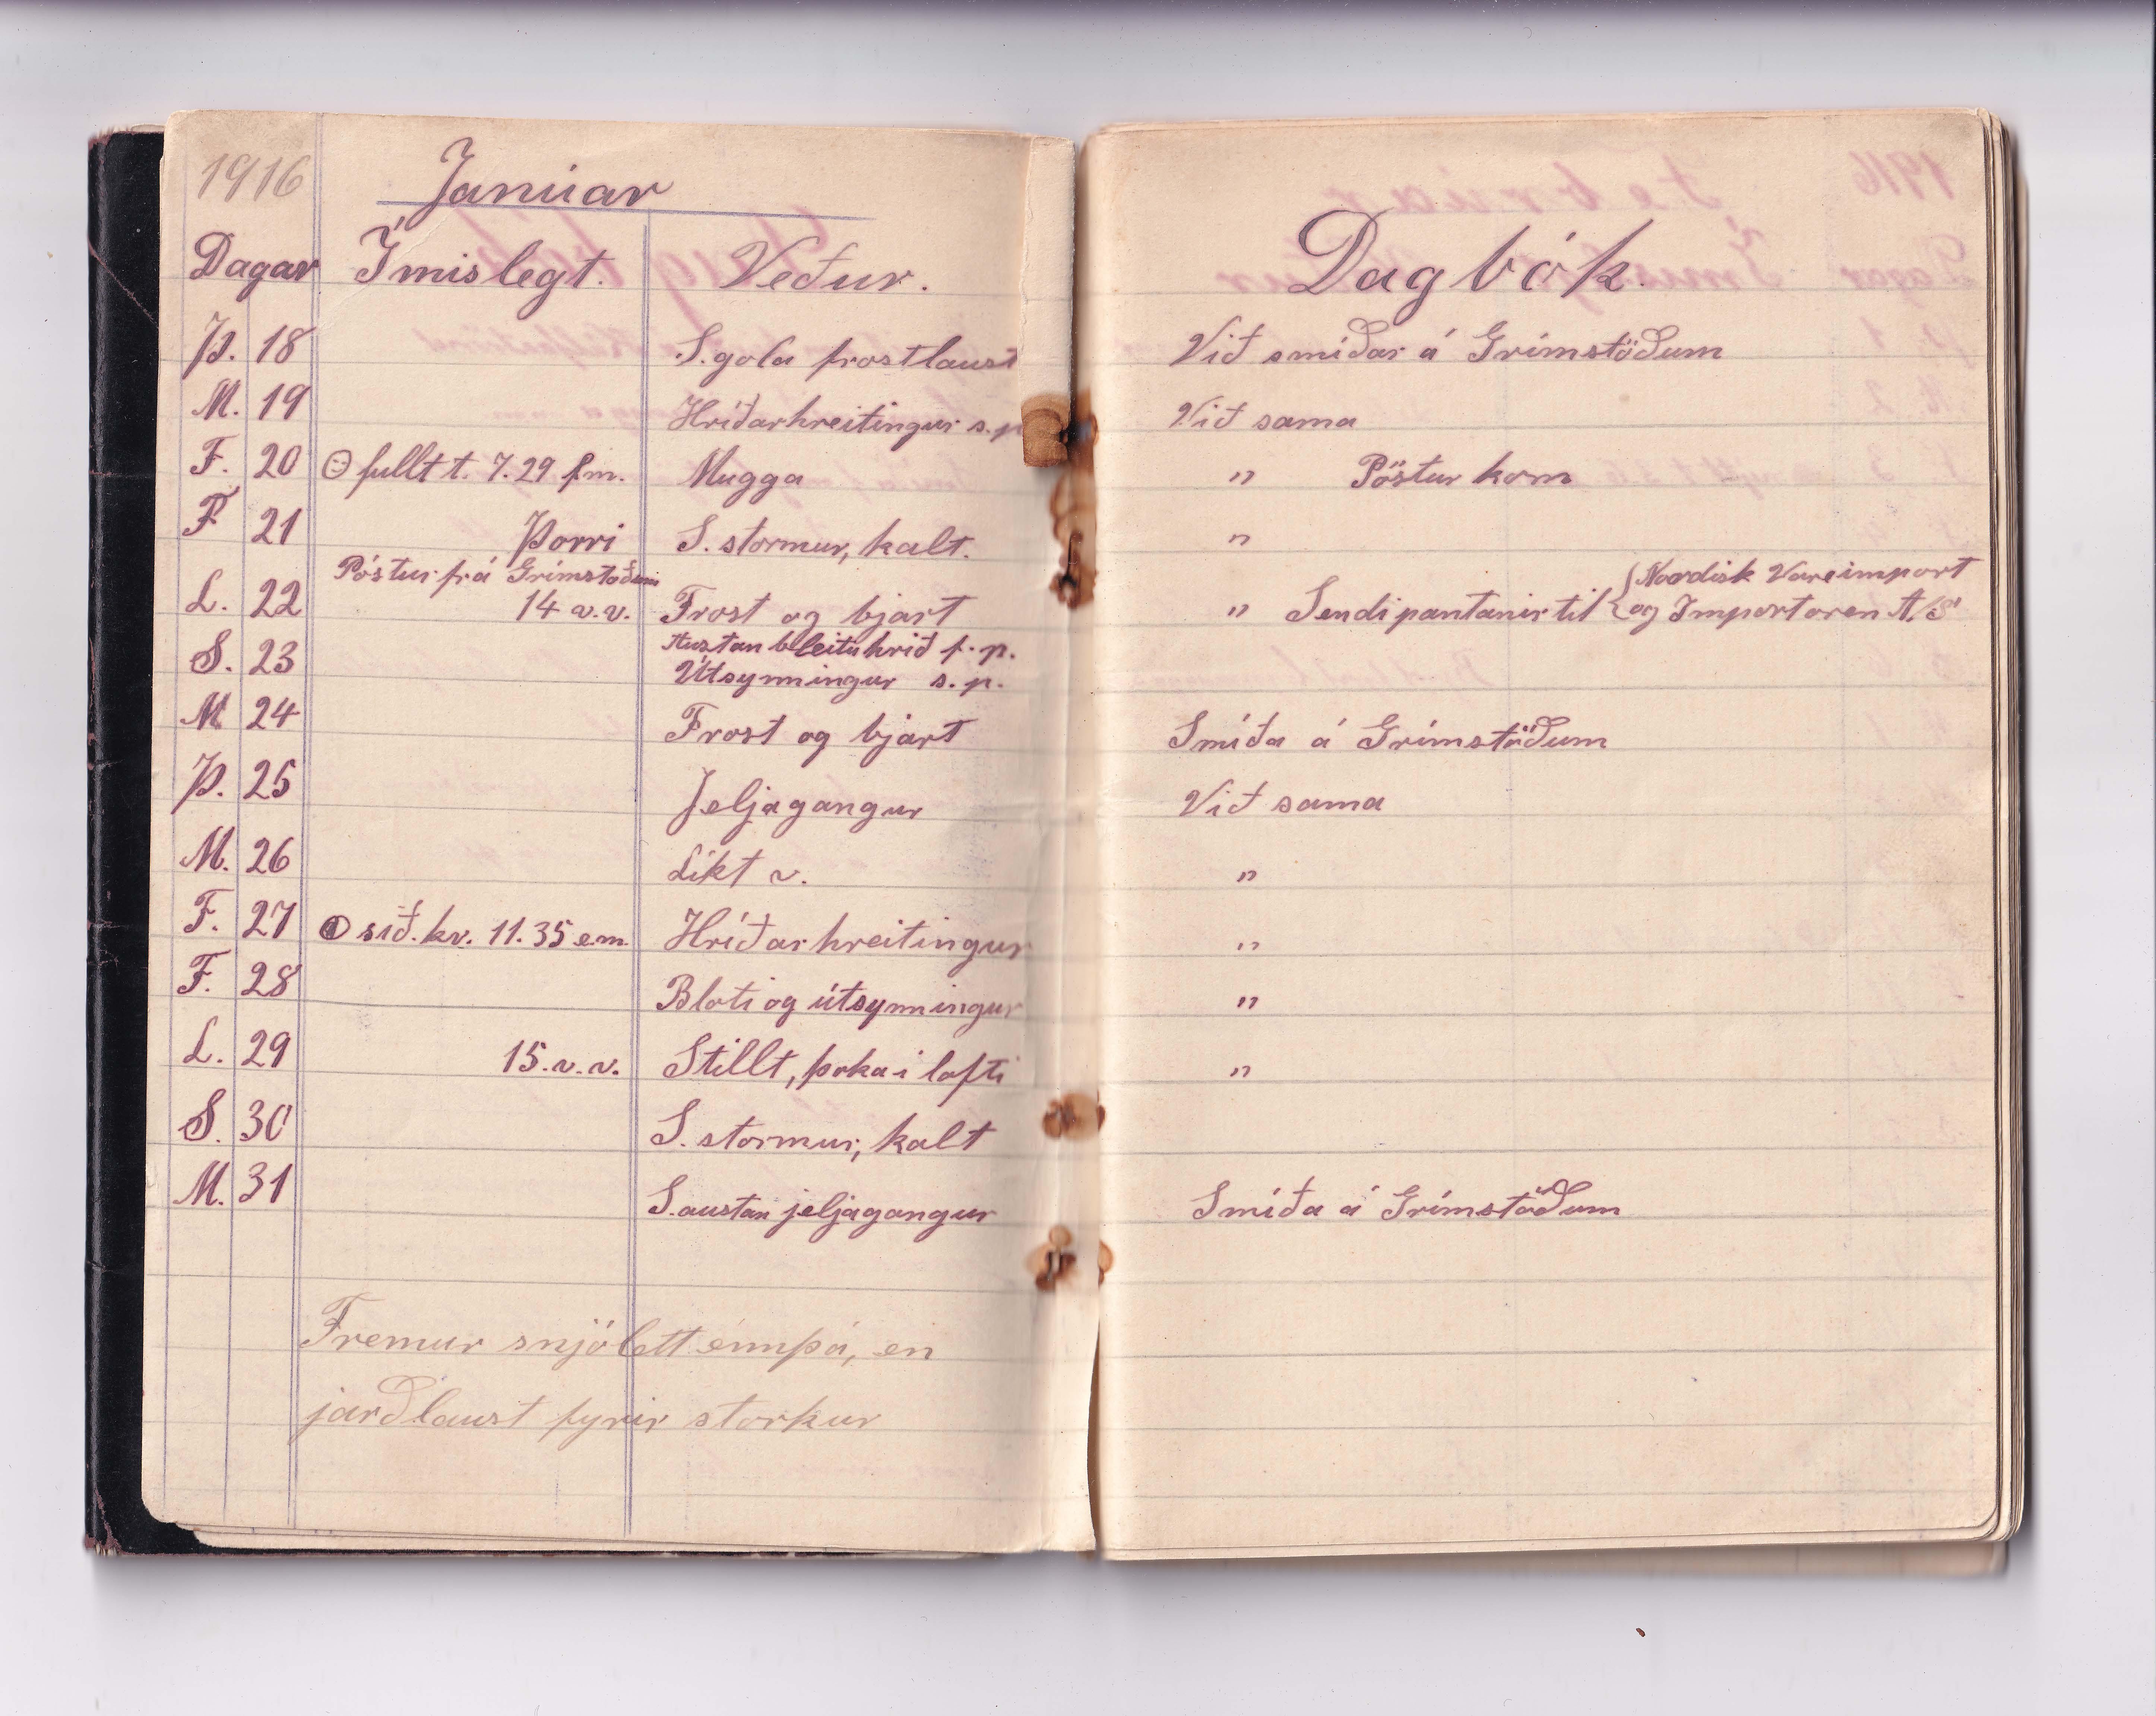 1916 Januar
Dagar Ímislegt. Veður.
Þ. 18 S. gola frostlaust
M. 19 Hríðarhreitingur s.p
F. 20 fullt t. 7.29 f.m. Mugga
F 21 Þorri S. stormur, kalt.
Póstur frá Grímstöðum
L. 22 14 v.v. Frost og bjart
Austan bleituhríð f.p.
S. 23 Útsynningur s.p.
M 24 Frost og bjart
Þ. 25 Jeljagangur
M. 26 Líkt v.
F. 27 síð. kv. 11.35 e.m. Hríðarhreitingur
F. 28 Bloti og útsynningur
L. 29 15. v. v. Stillt, þoka í lofti
S. 30 S. stormur, kalt
M. 31 S. austan jeljagangur
Fremur snjólett ennþá, en
jarðlaust fyrir storkur
Dagbók.
Við smíðar á Grímstöðum
Við sama
" Póstur kom
"
Nordisk Vareimport
" Sendi pantanir til og Importoren A/S
Smíða á Grímstöðum
Við sama
"
"
"
"
Smíða á Grímstöðum